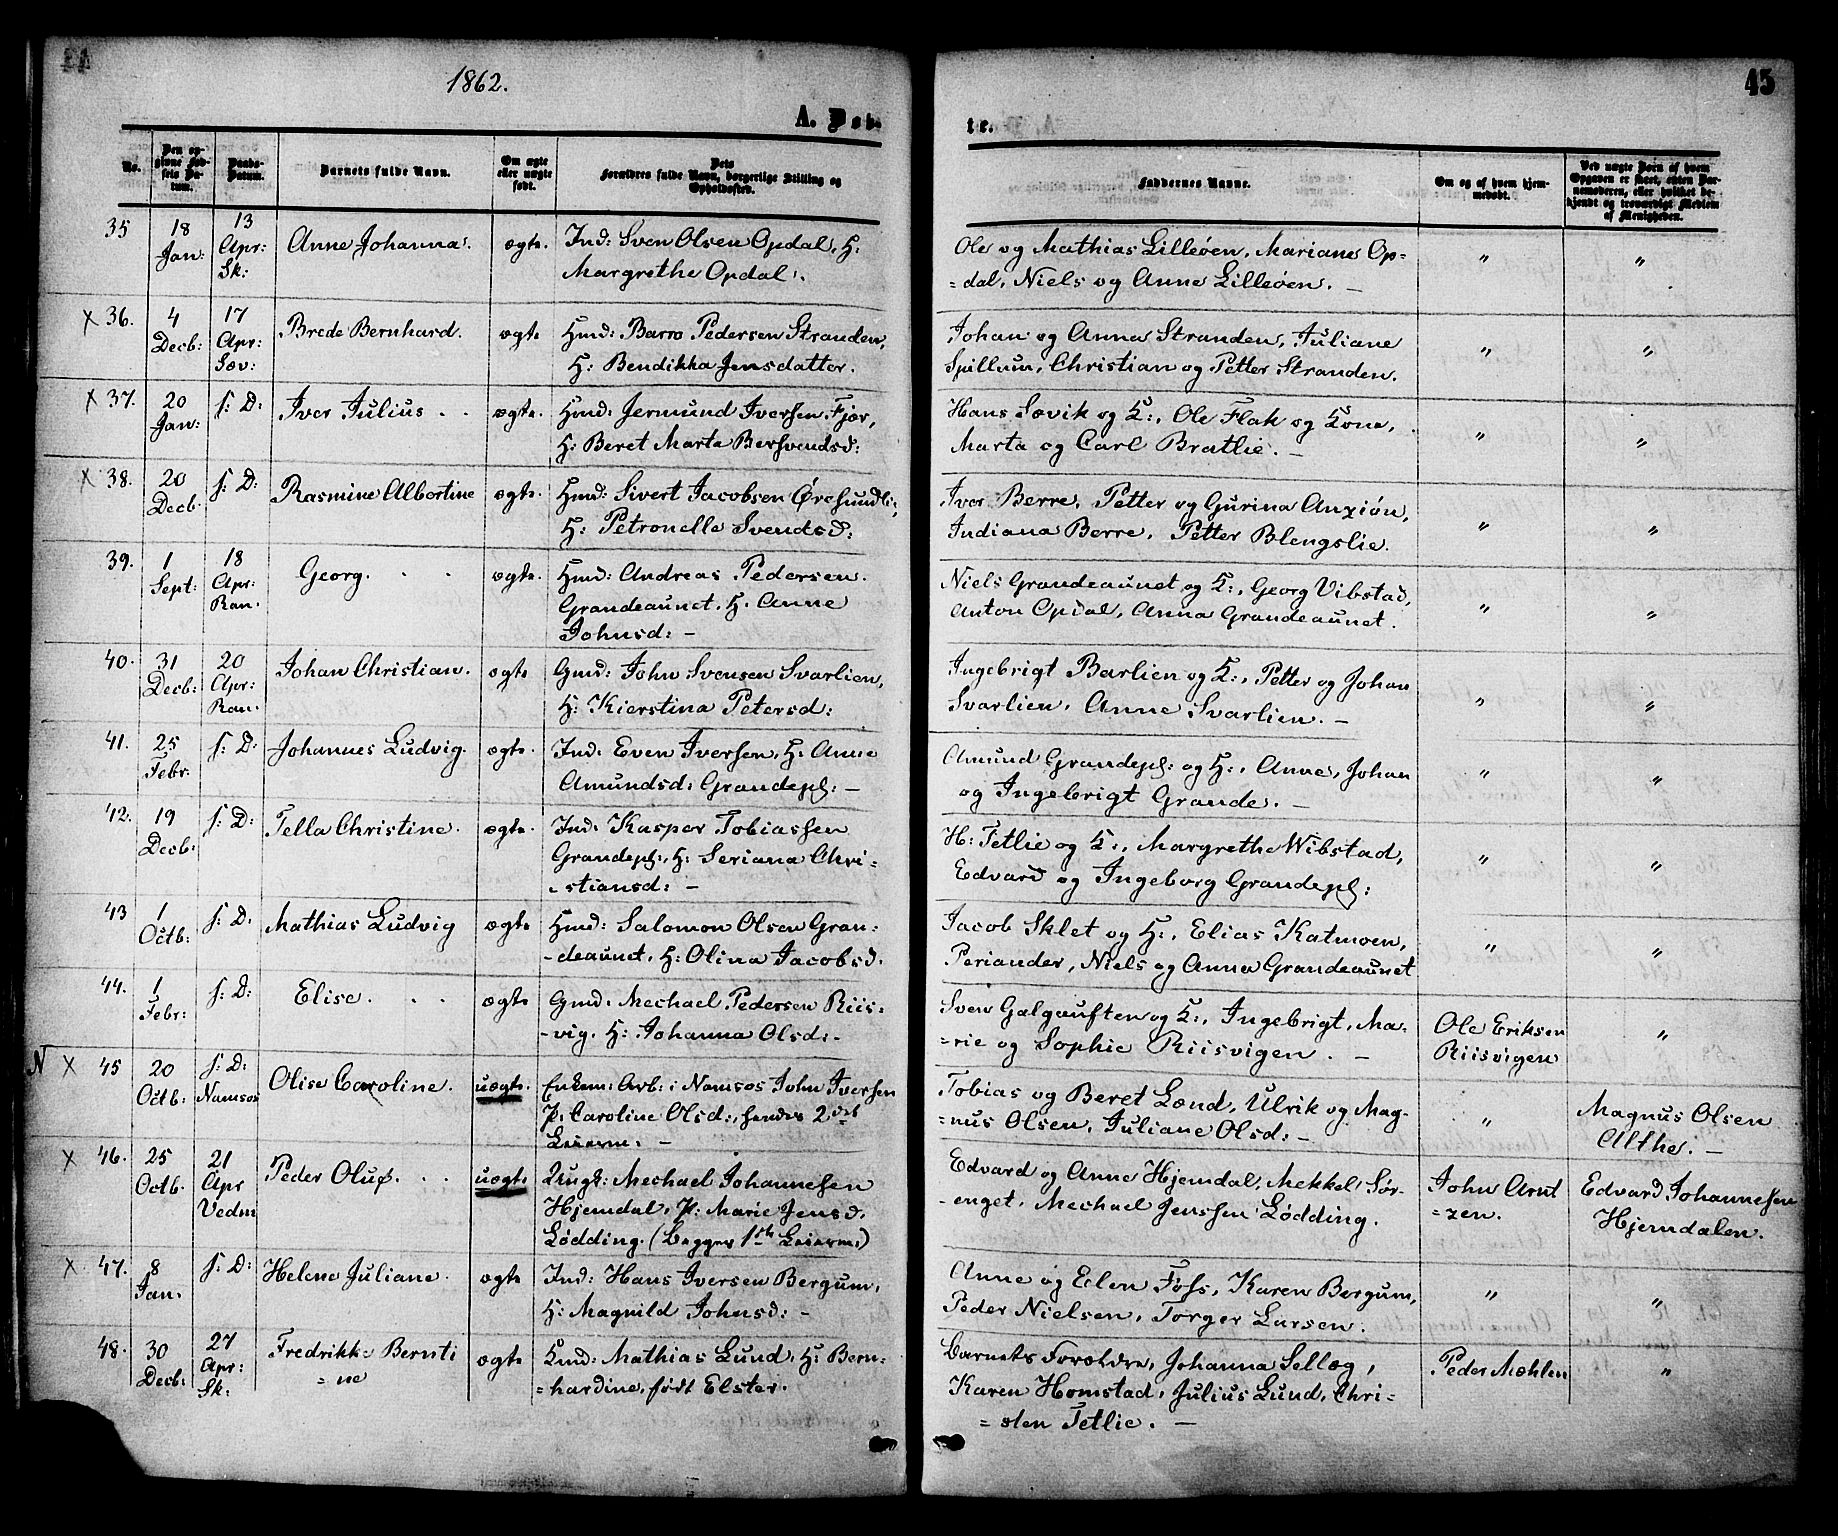 1862.
45
A. Døb-
te.
No.
Den op-
givne Fød-
sels Da-
tum.
Daabs-
Datum.
Barnets fulde Navn.
Om ægte
eller uægte
født.
Dets
Forældres fulde Navn, borgerlige Stilling og
Opholdssted.
Faddernes Navne.
Om og af hvem hjem-
medøbt.
Ved uægte Børn af hvem
Opgaven er skeet, enten Bar-
nemoderen, eller hvilket be-
kjendt og troværdigt Medlem
af Menigheden.
35 18 Jan: 13 Apr: Sk: Anne Johanna. ægte. Ind: Sven Olsen Opdal, H:
Margrethe Opdal.
Ole og Mathias Lilleøen, Mariane Op=
=dal, Niels og Anne Lilleøen. — " "
x 36. 4 Decb: 17 Apr: Sæv: Brede Bernhard. ægte Hmd: Baro Pedersen Stranden,
H: Bendikka Jensdatter.
Johan og Anna Stranden, Juliane
Spillum, Christian og Petter Stranden. " "
x 37. 20 Jan: s: D: Iver Julius . . ægte. Hmd: Jermund Iversen Fjær,
H: Beret Marta Bersvendsd:
Hans Sævik og K:, Ole Flak og Kone,
Marta og Carl Bratlie. — " "
x 38. 20 Decb. s: D: Rasmine Albertine ægte. Hmd: Sivert Jacobsen Øresundli,
H: Petronelle Svendsd:
Iver Berre, Petter og Gurina Anxiøn,
Indiana Berre, Petter Blengslie. " "
39. 1 Sept: 18 Apr: Ran. Georg. . . ægte. Hmd: Andreas Pedersen
Grandeaunet, H. Anne
Johnsd: —
Niels Grandeaunet og K:, Georg Vibstad,
Anton Opdal, Anna Grandeaunet. " "
40. 31 Decb: 20 Apr: Ran. Johan Christian. ægte Gmd: John Svensen Svarlien,
H: Kierstina Petersd:
Ingebrigt Barlien og K:, Petter og Johan
Svarlien, Anne Svarlien. — " "
41. 25 Febr: s: D: Johannes Ludvig. ægte. Ind: Even Iversen, H: Anne
Amundsd: Grandepl: —
Amund Grandepl: og H:, Anne, Johan
og Ingebrigt Grande. — " "
42. 19 Decb: s: D: Tella Christine. ægte. Ind: Kasper Tobiassen
Grandepl:, H: Seriana Chri-
-stiansd: —
H: Tetlie og K:, Margrethe Wibstad,
Edvard og Ingeborg Grandepl: " "
43 1 Octb: s: D: Mathias Ludvig ægte Hmd: Salomon Olsen Gran-
-deaunet, H: Olina Jacobsd.
Jacob Sklet og H:, Elias Katmoen,
Periander, Niels og Anna Grandeaunet " "
44. 1 Febr: s: D: Elise. . . ægte Gmd: Mechael Pedersen Riis-
-vig. H: Johanna Olsd: -
Sven Galguuften og K:, Ingebrigt, Ma-
=rie og Sophie Riisvigen. —
Ole Eriksen
Riisvigen "
N x 45 20 Octb: s: D: Namsos Olise Caroline. uægte. Enkem: Arb: i Namsos John Iversen
P: Caroline Olsd:, hendes 2det
Leierm: —
Tobias og Beret Lænd, Ulrik og Mag-
=nus Olsen, Juliane Olsd: — "
Magnus Olsen
Althe. —
x 46. 25 Octb. 21 Apr Vedm Peder Oluf. . . uægte Ungk: Mechael Johannesen
Hjemdal, P: Marie Jensd.
Lødding. (Begges 1ste Leierm:)
Edvard og Anne Hjemdal, Mekkel Sør-
-enget, Mechael Jenssen Lødding.
John Arnt
=zen.
Edvard Johannesen
Hjemdalen.
x 47. 8 Jan. s: D: Helene Juliane. ægte Ind: Hans Iversen Bergum,
H: Magnild Johnsd: —
Anne og Elen Foss, Karen Bergum,
Peder Nielsen, Torger Larsen. " "
48. 30 Decb: 27 Apr: Sk: Fredrikke Bernti
=ne ægte Kmd: Mathias Lund, H: Bern-
=hardine, født Elster.
Barnets Forældre, Johanna Sellæg,
Karen Homstad, Julius Lund, Chri-
=sten Tetlie. —
Peder Mæhlen "